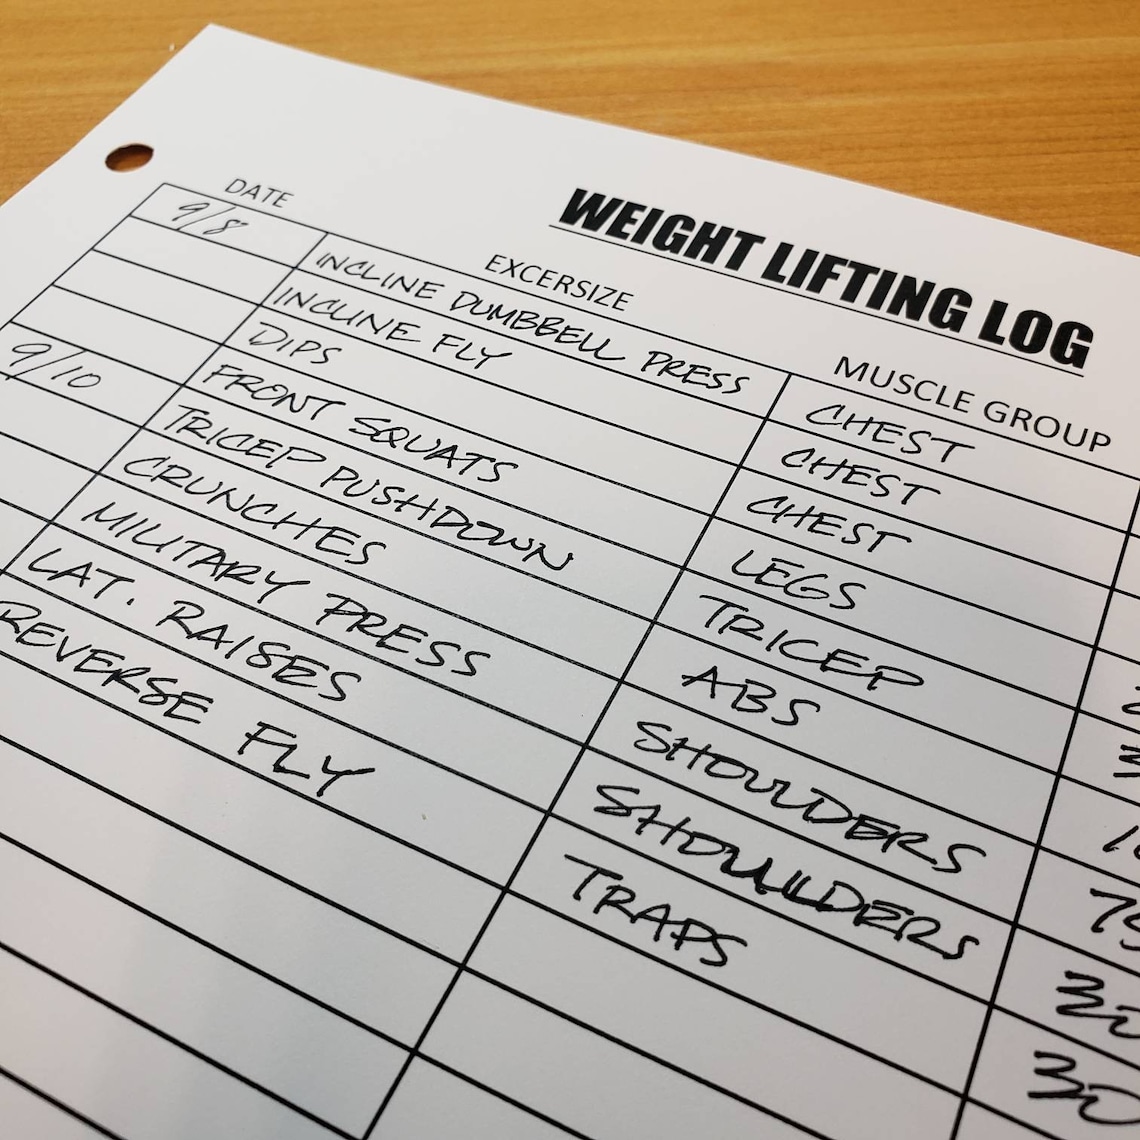 WEIGHT LIFTING LOG
DATE EXCERSIZE MUSCLE GROUP
9/8 INCLINE DUMBBELL PRESS CHEST
INCLINE FLY CHEST
DIPS CHEST
FRONT SQUATS LEGS
9/10 TRICEP PUSHDOWN TRICEP
CRUNCHES ABS
MILITARY PRESS SHOULDERS
LAT. RAISES SHOULDERS 30
REVERSE FLY TRAPS 30